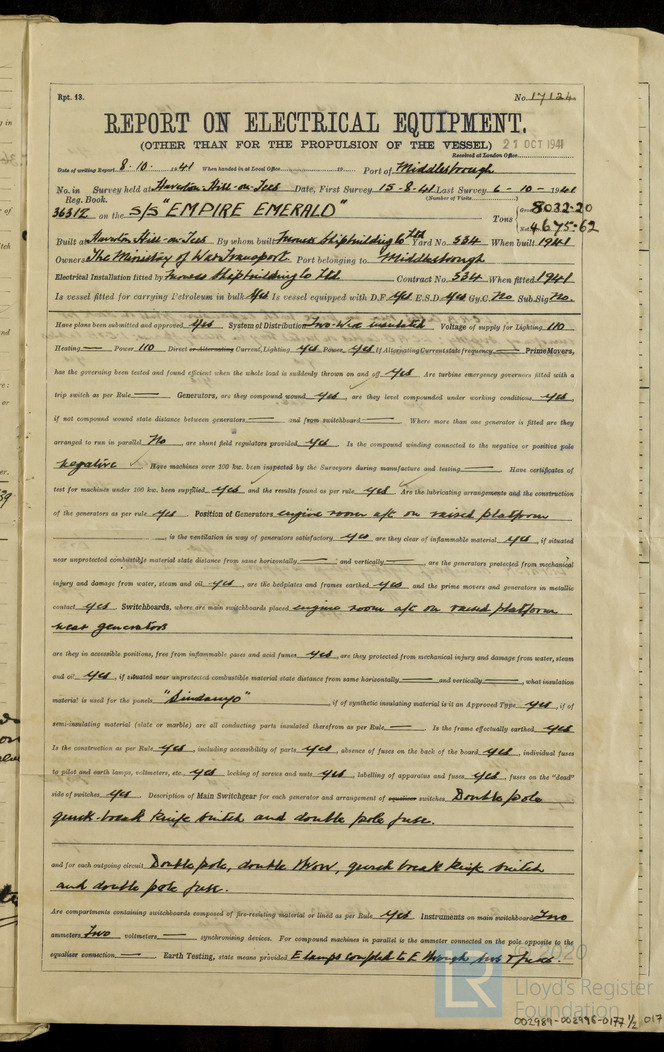 Rpt. 13.
No. 17124
REPORT ON ELECTRICAL EQUIPMENT.
(OTHER THAN FOR THE PROPULSION OF THE VESSEL)
21 OCT 1941
Received at London Office
Date of writing Report 8.10.1941 When handed in at Local Office 19 Port of Middlesbrough
No. in Survey held at Haverton-Hill-on-Tees Date, First Survey 15-8-41 Last Survey 6-10-1941
Reg. Book. (Number of Visits)
36312 on the S/S "EMPIRE EMERALD" Tons Gross 8032.20
Net 4675.62
Built at Haverton Hill-on-Tees By whom built Furness Shipbuilding Co Ltd Yard No. 334 When built 1941
Owners The Ministry of War Transport. Port belonging to Middlesbrough
Electrical Installation fitted by Furness Shipbuilding Co Ltd Contract No. 334 When fitted 1941
Is vessel fitted for carrying Petroleum in bulk Yes Is vessel equipped with D.F. Yes E.S.D. Yes Gy.C. No Sub.Sig. No.
Have plans been submitted and approved yes System of Distribution Two-Wire insulated Voltage of supply for Lighting 110
Heating — Power 110 Direct or Alternating Current, Lighting yes Power yes If Alternating Current state frequency — Prime Movers,
has the governing been tested and found efficient when the whole load is suddenly thrown on and off yes Are turbine emergency governors fitted with a
trip switch as per Rule — Generators, are they compound wound yes, are they level compounded under working conditions yes,
if not compound wound state distance between generators — and from switchboard — Where more than one generator is fitted are they
arranged to run in parallel No, are shunt field regulators provided yes Is the compound winding connected to the negative or positive pole
negative Have machines over 100 kw. been inspected by the Surveyors during manufacture and testing — Have certificates of
test for machines under 100 kw. been supplied yes and the results found as per rule yes Are the lubricating arrangements and the construction
of the generators as per rule yes Position of Generators engine room aft on raised platform
is the ventilation in way of generators satisfactory yes are they clear of inflammable material yes, if situated
near unprotected combustible material state distance from same horizontally — and vertically — are the generators protected from mechanical
injury and damage from water, steam and oil yes, are the bedplates and frames earthed yes and the prime movers and generators in metallic
contact yes Switchboards, where are main switchboards placed engine room aft on raised platform
near generators
are they in accessible positions, free from inflammable gases and acid fumes yes, are they protected from mechanical injury and damage from water, steam
and oil yes, if situated near unprotected combustible material state distance from same horizontally — and vertically —, what insulation
material is used for the panels "Sindanyo", if of synthetic insulating material is it an Approved Type yes, if of
semi-insulating material (slate or marble) are all conducting parts insulated therefrom as per Rule — Is the frame effectually earthed yes
Is the construction as per Rule yes, including accessibility of parts yes, absence of fuses on the back of the board yes, individual fuses
to pilot and earth lamps, voltmeters, etc. yes locking of screws and nuts yes, labelling of apparatus and fuses yes, fuses on the "dead"
side of switches yes Description of Main Switchgear for each generator and arrangement of equaliser switches Double pole
quick-break knife switch and double pole fuse.
and for each outgoing circuit Double pole, double throw, quick break knife switch
and double pole fuse.
Are compartments containing switchboards composed of fire-resisting material or lined as per Rule yes Instruments on main switchboard Two
ammeters Two voltmeters — synchronising devices. For compound machines in parallel is the ammeter connected on the pole opposite to the
equaliser connection — Earth Testing, state means provided E lamps coupled to E through
© 2020
LR
Lloyd's Register
Foundation
002989-002996-0177 1/2 017